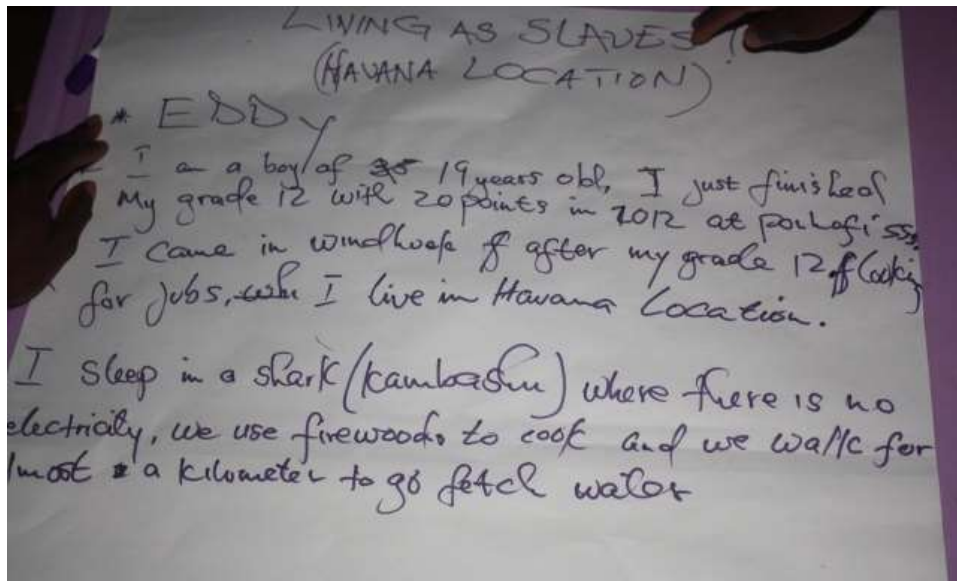 LINING AS SLAVES!
(HAVANA LOCATION)
* EDDY
I am a boy of 19 years old, I just finished
My grade 12 with 20 points in 2012 at
I came in windhoek after my grade 12 looking
for jobs, I live in Havana Location.
I sleep in a shark (kambashu) where there is no
electricity, we use firewoods to cook and we walk for
lmost a kilometer to go fetch water